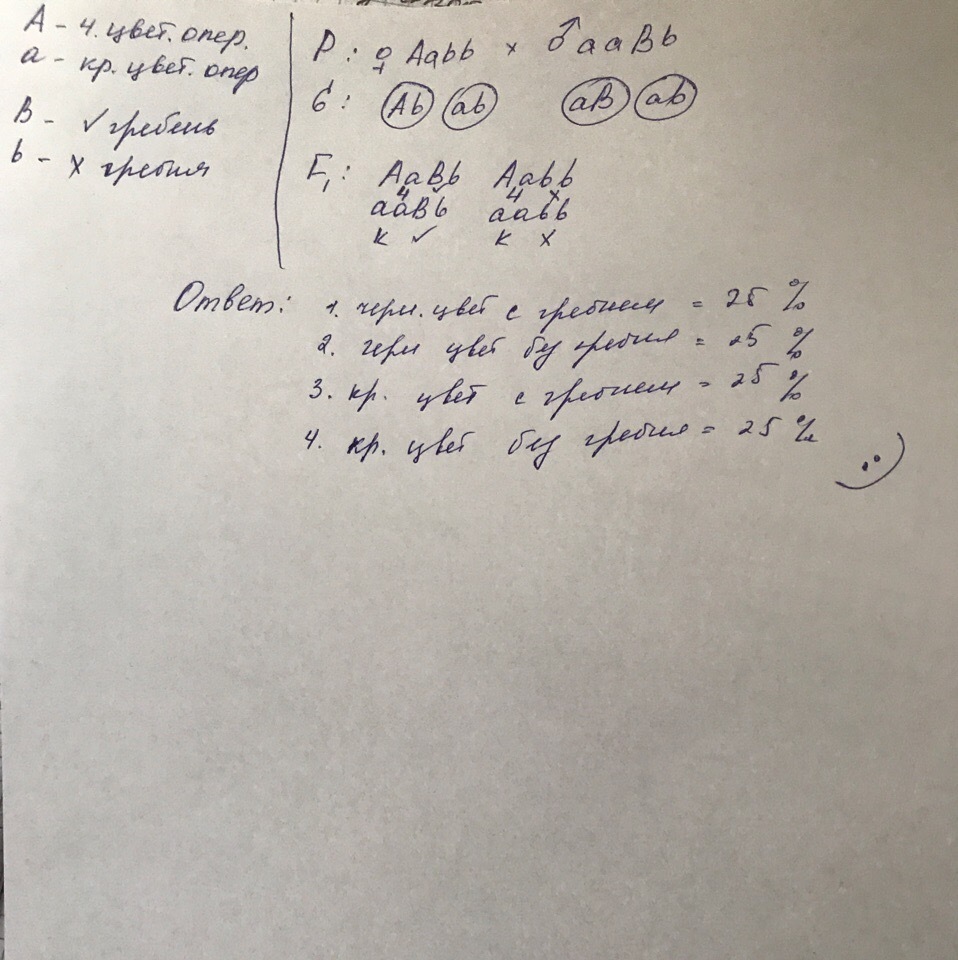 А - ч. цвет. опер.
а - кр. цвет. опер
В - ✓ гребень
b - х гребня
Р: ♀ Ааbb × ♂ ааВb
G: Аb аb аВ аb
F₁: АаВb Ааbb
ч ✓ ч х
ааВb ааbb
к ✓ к х
Ответ: 1. черн. цвет с гребнем = 25 %
2. черн цвет без гребня = 25 %
3. кр. цвет с гребнем = 25 %
4. кр. цвет без гребня = 25 %